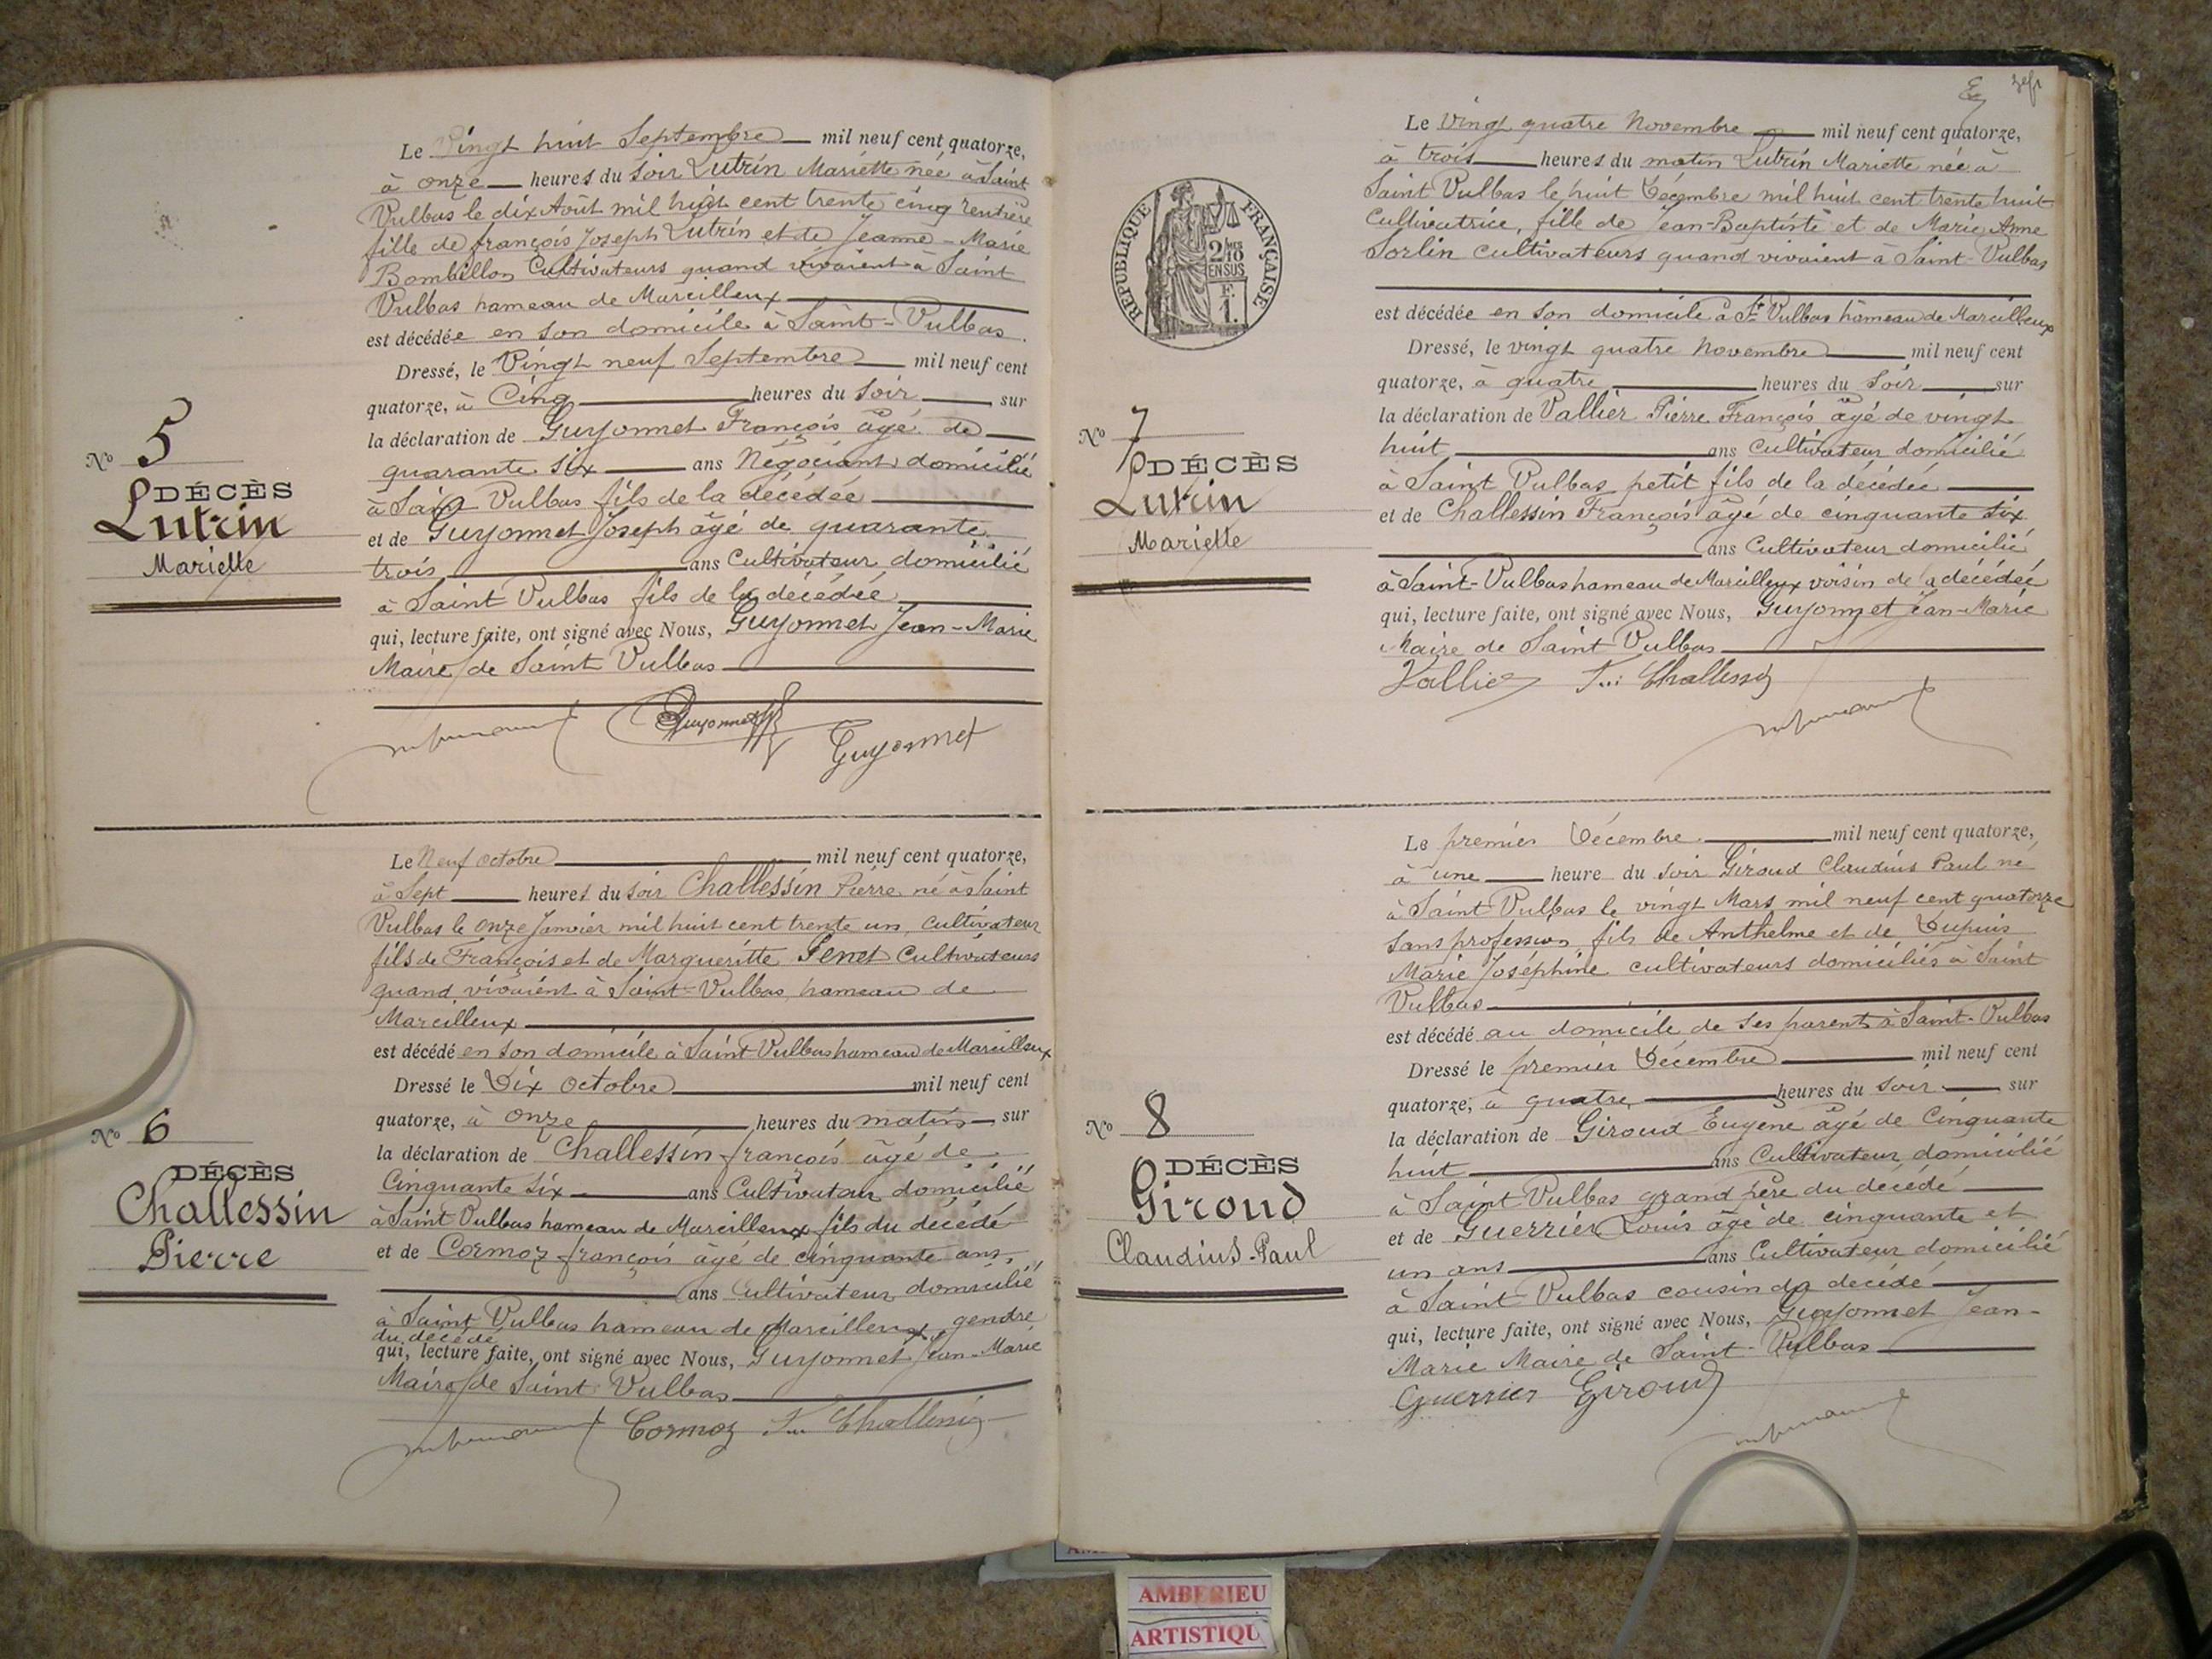 Le Vingt huit Septembre mil neuf cent quatorze,
à onze heures du soir Lutrin Mariette née à Saint
Vulbas le dix Août mil huit cent trente cinq rentière
fille de françois Joseph Lutrin et de Jeanne-Marie
Bombillon Cultivateurs quand vivaient à Saint
Vulbas hameau de Marcilleux
est décédée en son domicile à Saint-Vulbas.
Dressé, le Vingt neuf Septembre mil neuf cent
quatorze, à Cinq heures du Soir sur
la déclaration de Guyonnet François âgé de
quarante six ans Négociant domicilié
à Saint Vulbas fils de la décédée
et de Guyonnet Joseph âgé de quarante
trois ans Cultivateur domicilié
à Saint Vulbas fils de la décédée
qui, lecture faite, ont signé avec Nous, Guyonnet Jean-Marie
Maire de Saint Vulbas
Guyonnet
Guyonnet
No 5
DÉCÈS
Lutrin
Mariette
Le Neuf octobre mil neuf cent quatorze,
à Sept heures du soir Challessin Pierre né à Saint
Vulbas le onze Janvier mil huit cent trente un, cultivateur
fils de François et de Margueritte Penet Cultivateurs
quand vivaient à Saint-Vulbas, hameau de
Marcilleux
est décédé en son domicile à Saint Vulbas hameau de Marcilleux
Dressé le Dix octobre mil neuf cent
quatorze, à onze heures du matin sur
la déclaration de Challessin françois âgé de
Cinquante six ans Cultivateur domicilié
à Saint Vulbas hameau de Marcilleux fils du décédé
et de Cormoz françois âgé de cinquante ans,
ans Cultivateur domicilié
à Saint Vulbas hameau de Marcilleux gendre
du décédé
qui, lecture faite, ont signé avec Nous, Guyonnet Jean-Marie
Maire de Saint Vulbas
Cormoz F... Challessin
No 6
DÉCÈS
Challessin
Pierre
RÉPUBLIQUE FRANÇAISE
2/10 EN SUS
F.
1.
Le Vingt quatre Novembre mil neuf cent quatorze,
à trois heures du matin Lutrin Mariette née à
Saint Vulbas le huit Décembre mil huit cent trente huit
Cultivatrice, fille de Jean-Baptiste et de Marie Anne
Sorlin cultivateurs quand vivaient à Saint-Vulbas
est décédée en son domicile à St Vulbas hameau de Marcilleux
Dressé, le vingt quatre Novembre mil neuf cent
quatorze, à quatre heures du Soir sur
la déclaration de Vallier Pierre François âgé de vingt
huit ans cultivateur domicilié
à Saint Vulbas petit fils de la décédée
et de Challessin François âgé de cinquante six
ans Cultivateur domicilié
à Saint-Vulbas hameau de Marcilleux voisin de la décédée
qui, lecture faite, ont signé avec Nous, Guyonnet Jean-Marie
Maire de Saint Vulbas
Vallier F... Challessin
No 7
DÉCÈS
Lutrin
Mariette
Le premier Décembre mil neuf cent quatorze,
à une heure du soir Giroud Claudius Paul né
à Saint Vulbas le vingt Mars mil neuf cent quatorze
sans profession fils de Anthelme et de Dupuis
Marie Joséphine cultivateurs domiciliés à Saint
Vulbas
est décédé au domicile de ses parents à Saint-Vulbas
Dressé le premier Décembre mil neuf cent
quatorze, à quatre heures du Soir sur
la déclaration de Giroud Eugène âgé de Cinquante
huit ans Cultivateur domicilié
à Saint Vulbas grand père du décédé
et de Guerrier Louis âgé de cinquante et
un ans ans Cultivateur domicilié
à Saint Vulbas cousin du décédé
qui, lecture faite, ont signé avec Nous, Guyonnet Jean-
Marie Maire de Saint-Vulbas
Guerrier Giroud
No 8
DÉCÈS
Giroud
Claudius-Paul
AMBERIEU
ARTISTIQU